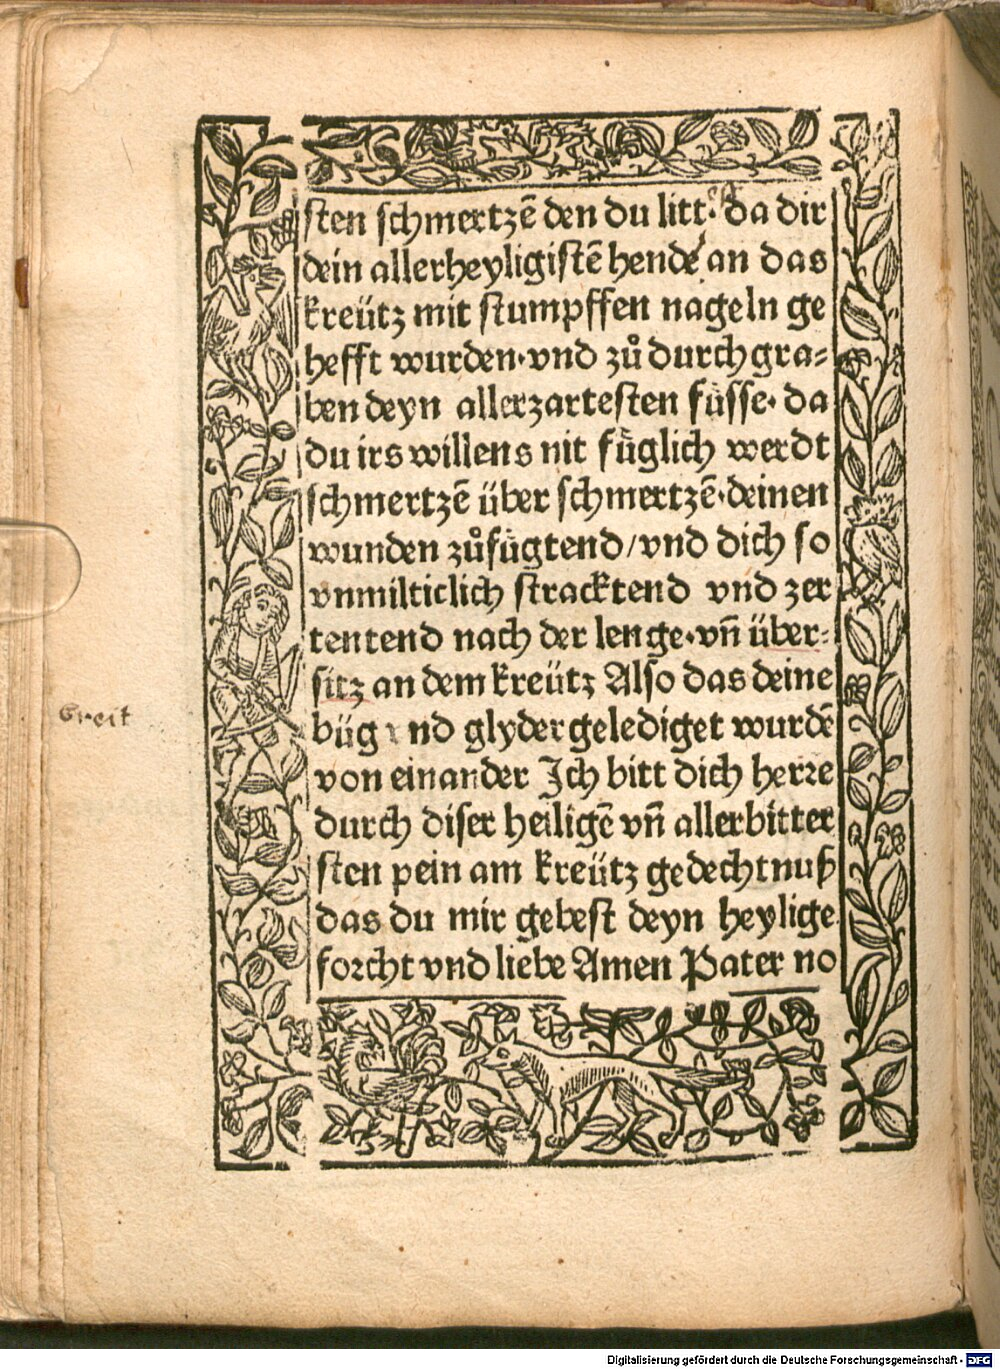 sten schmertzē den du litt· da dir
dein allerheyligistē hende an das
kreütz mit stumpffen nageln ge
hefft wurden·vnd zů durchgra⸗
ben deyn allerzartesten fuͤsse· da
du irs willens nit fuͤglich werdt
schmertzē über schmertzē·deinen
wunden zůfuͤgtend/vnd dich so
vnmilticlich stracktend vnd zer
tentend nach der lenge·vñ über⸗
sitz an dem kreütz Also das deine
büg nd glyder gelediget wurdē
von einander Ich bitt dich herre
durch diser heiligē vñ allerbitter
sten pein am kreütz gedechtnuß
das du mir gebest deyn heylige
forcht vnd liebe Amen Pater no
breit
Digitalisierung gefördert durch die Deutsche Forschungsgemeinschaft - DFG